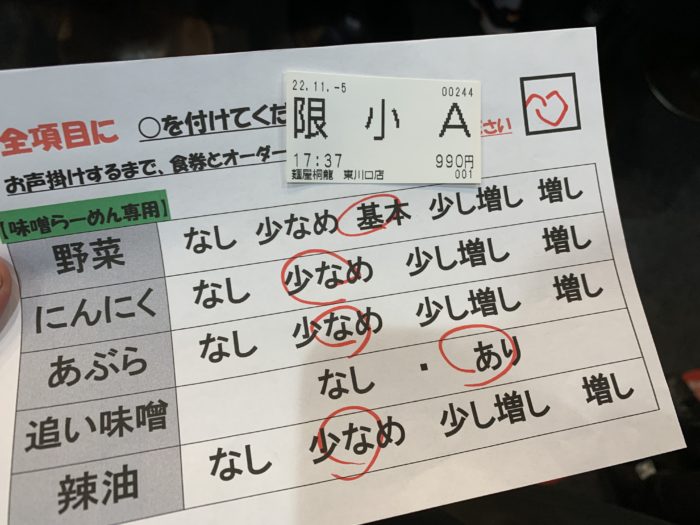 22.11.-5 00244
限 小 A
17:37 990円
麺屋桐龍 東川口店 001
全項目に ○を付けてくだ さい
お声掛けするまで、食券とオーダー
【味噌らーめん専用】
野菜 なし 少なめ 基本 少し増し 増し
にんにく なし 少なめ 少し増し 増し
あぶら なし 少なめ 少し増し 増し
追い味噌 なし ・ あり
辣油 なし 少なめ 少し増し 増し